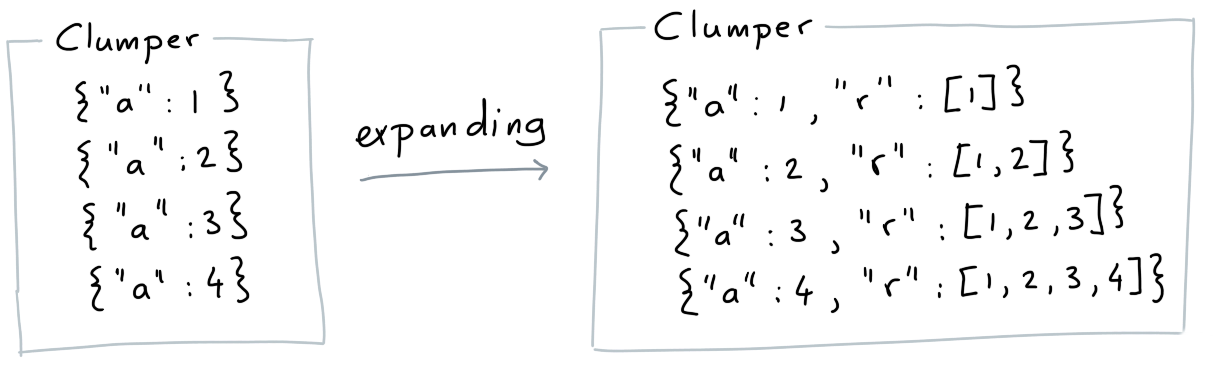 Clumper
{"a" : 1 }
{"a" : 2}
{"a" : 3}
{"a" : 4}
expanding
Clumper
{"a" : 1 , "r" : [1]}
{"a" : 2 , "r" : [1, 2]}
{"a" : 3 , "r" : [1, 2, 3]}
{"a" : 4 , "r" : [1, 2, 3, 4]}